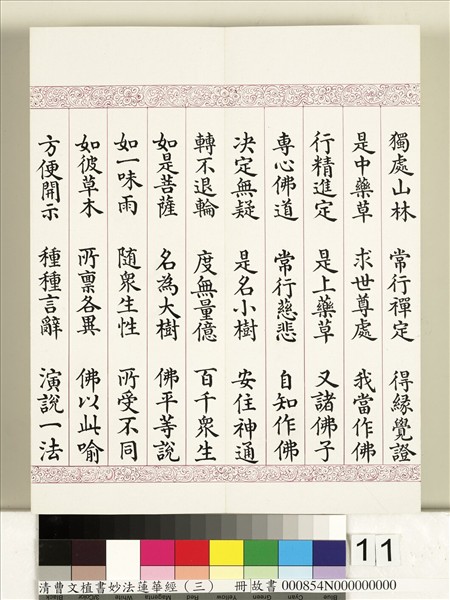 獨處山林　常行禪定　得緣覺證
是中藥草　求世尊處　我當作佛
行精進定　是上藥草　又諸佛子
専心佛道　常行慈悲　自知作佛
决定無疑　是名小樹　安住神通
轉不退輪　度無量億　百千衆生
如是菩薩　名為大樹　佛平等說
如一味雨　随衆生性　所受不同
如彼草木　所禀各異　佛以此喻
方便開示　種種言辭　演說一法
11
清曹文植書妙法蓮華經（三）　冊 故書 000854N000000000